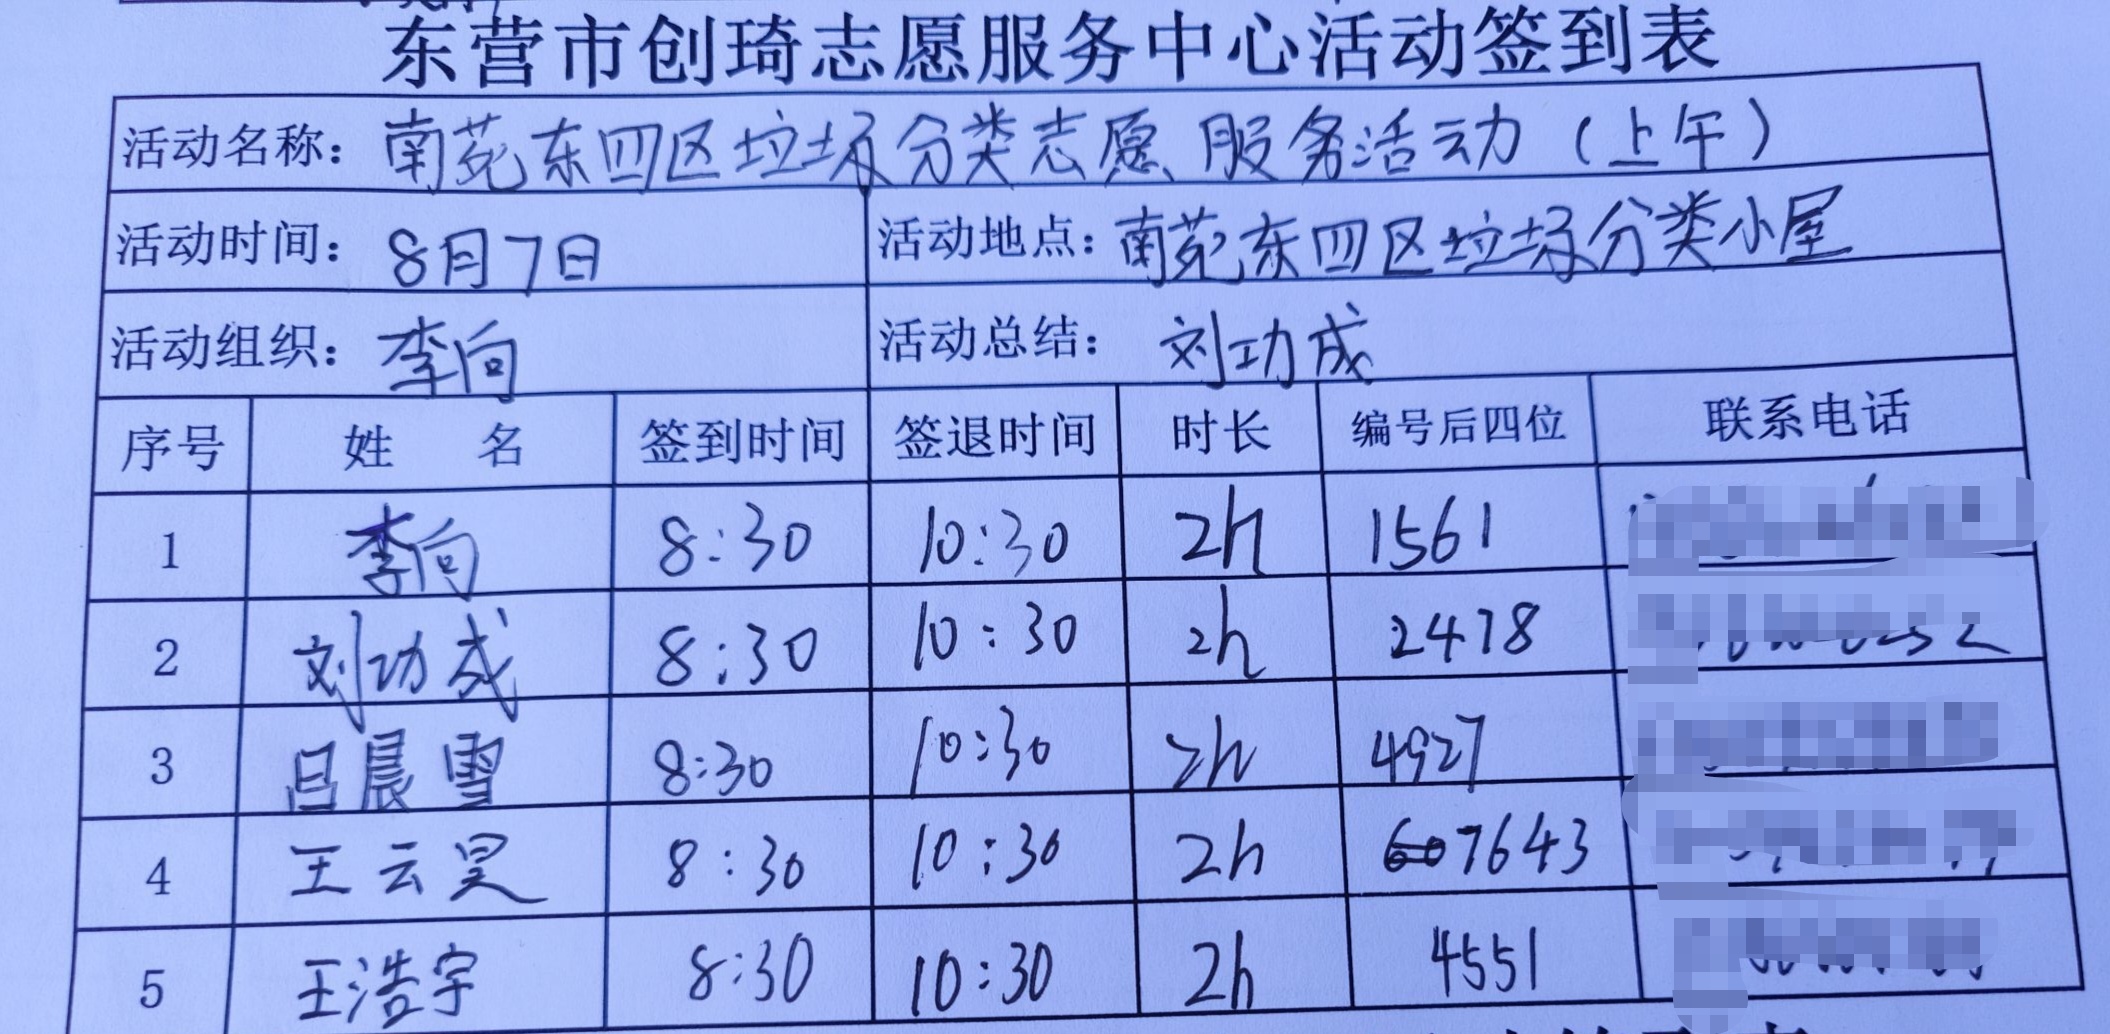 东营市创琦志愿服务中心活动签到表
活动名称：南苑东四区垃圾分类志愿服务活动（上午）
活动时间：8月7日 活动地点：南苑东四区垃圾分类小屋
活动组织：李向 活动总结：刘功成
序号 姓 名 签到时间 签退时间 时长 编号后四位 联系电话
1 李向 8:30 10:30 2h 1561
2 刘功成 8:30 10:30 2h 2478
3 吕晨雪 8:30 10:30 2h 4927
4 王云昊 8:30 10:30 2h 7643
5 王浩宇 8:30 10:30 2h 4551